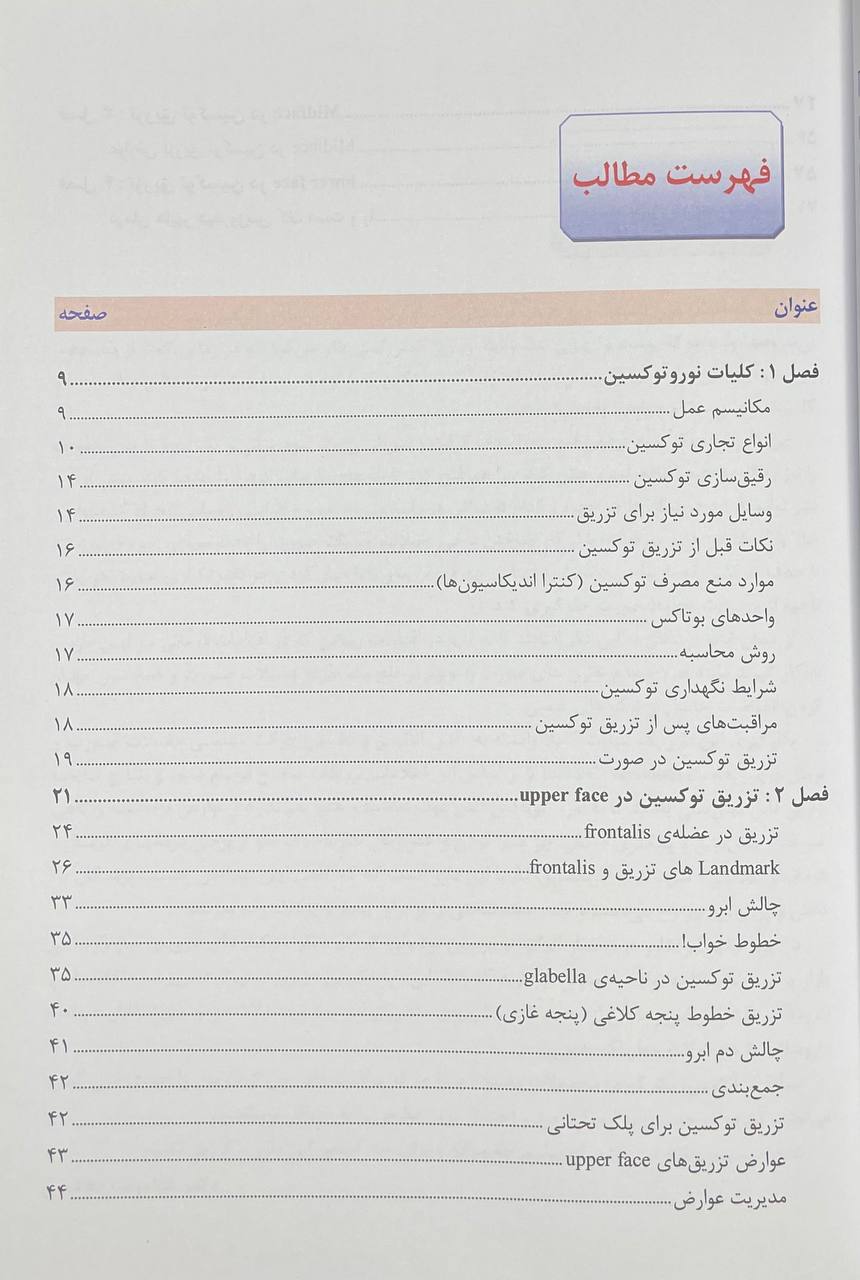 فهرست مطالب
عنوان صفحه
فصل ۱: کلیات نوروتوکسین ۹
مکانیسم عمل ۹
انواع تجاری توکسین ۱۰
رقیق‌سازی توکسین ۱۴
وسایل مورد نیاز برای تزریق ۱۴
نکات قبل از تزریق توکسین ۱۶
موارد منع مصرف توکسین (کنترا اندیکاسیون‌ها) ۱۶
واحدهای بوتاکس ۱۷
روش محاسبه ۱۷
شرایط نگهداری توکسین ۱۸
مراقبت‌های پس از تزریق توکسین ۱۸
تزریق توکسین در صورت ۱۹
فصل ۲: تزریق توکسین در upper face ۲۱
تزریق در عضله‌ی frontalis ۲۴
Landmark های تزریق و frontalis ۲۶
چالش ابرو ۳۳
خطوط خواب! ۳۵
تزریق توکسین در ناحیه‌ی glabella ۳۵
تزریق خطوط پنجه کلاغی (پنجه غازی) ۴۰
چالش دم ابرو ۴۱
جمع‌بندی ۴۲
تزریق توکسین برای پلک تحتانی ۴۲
عوارض تزریق‌های upper face ۴۳
مدیریت عوارض ۴۴